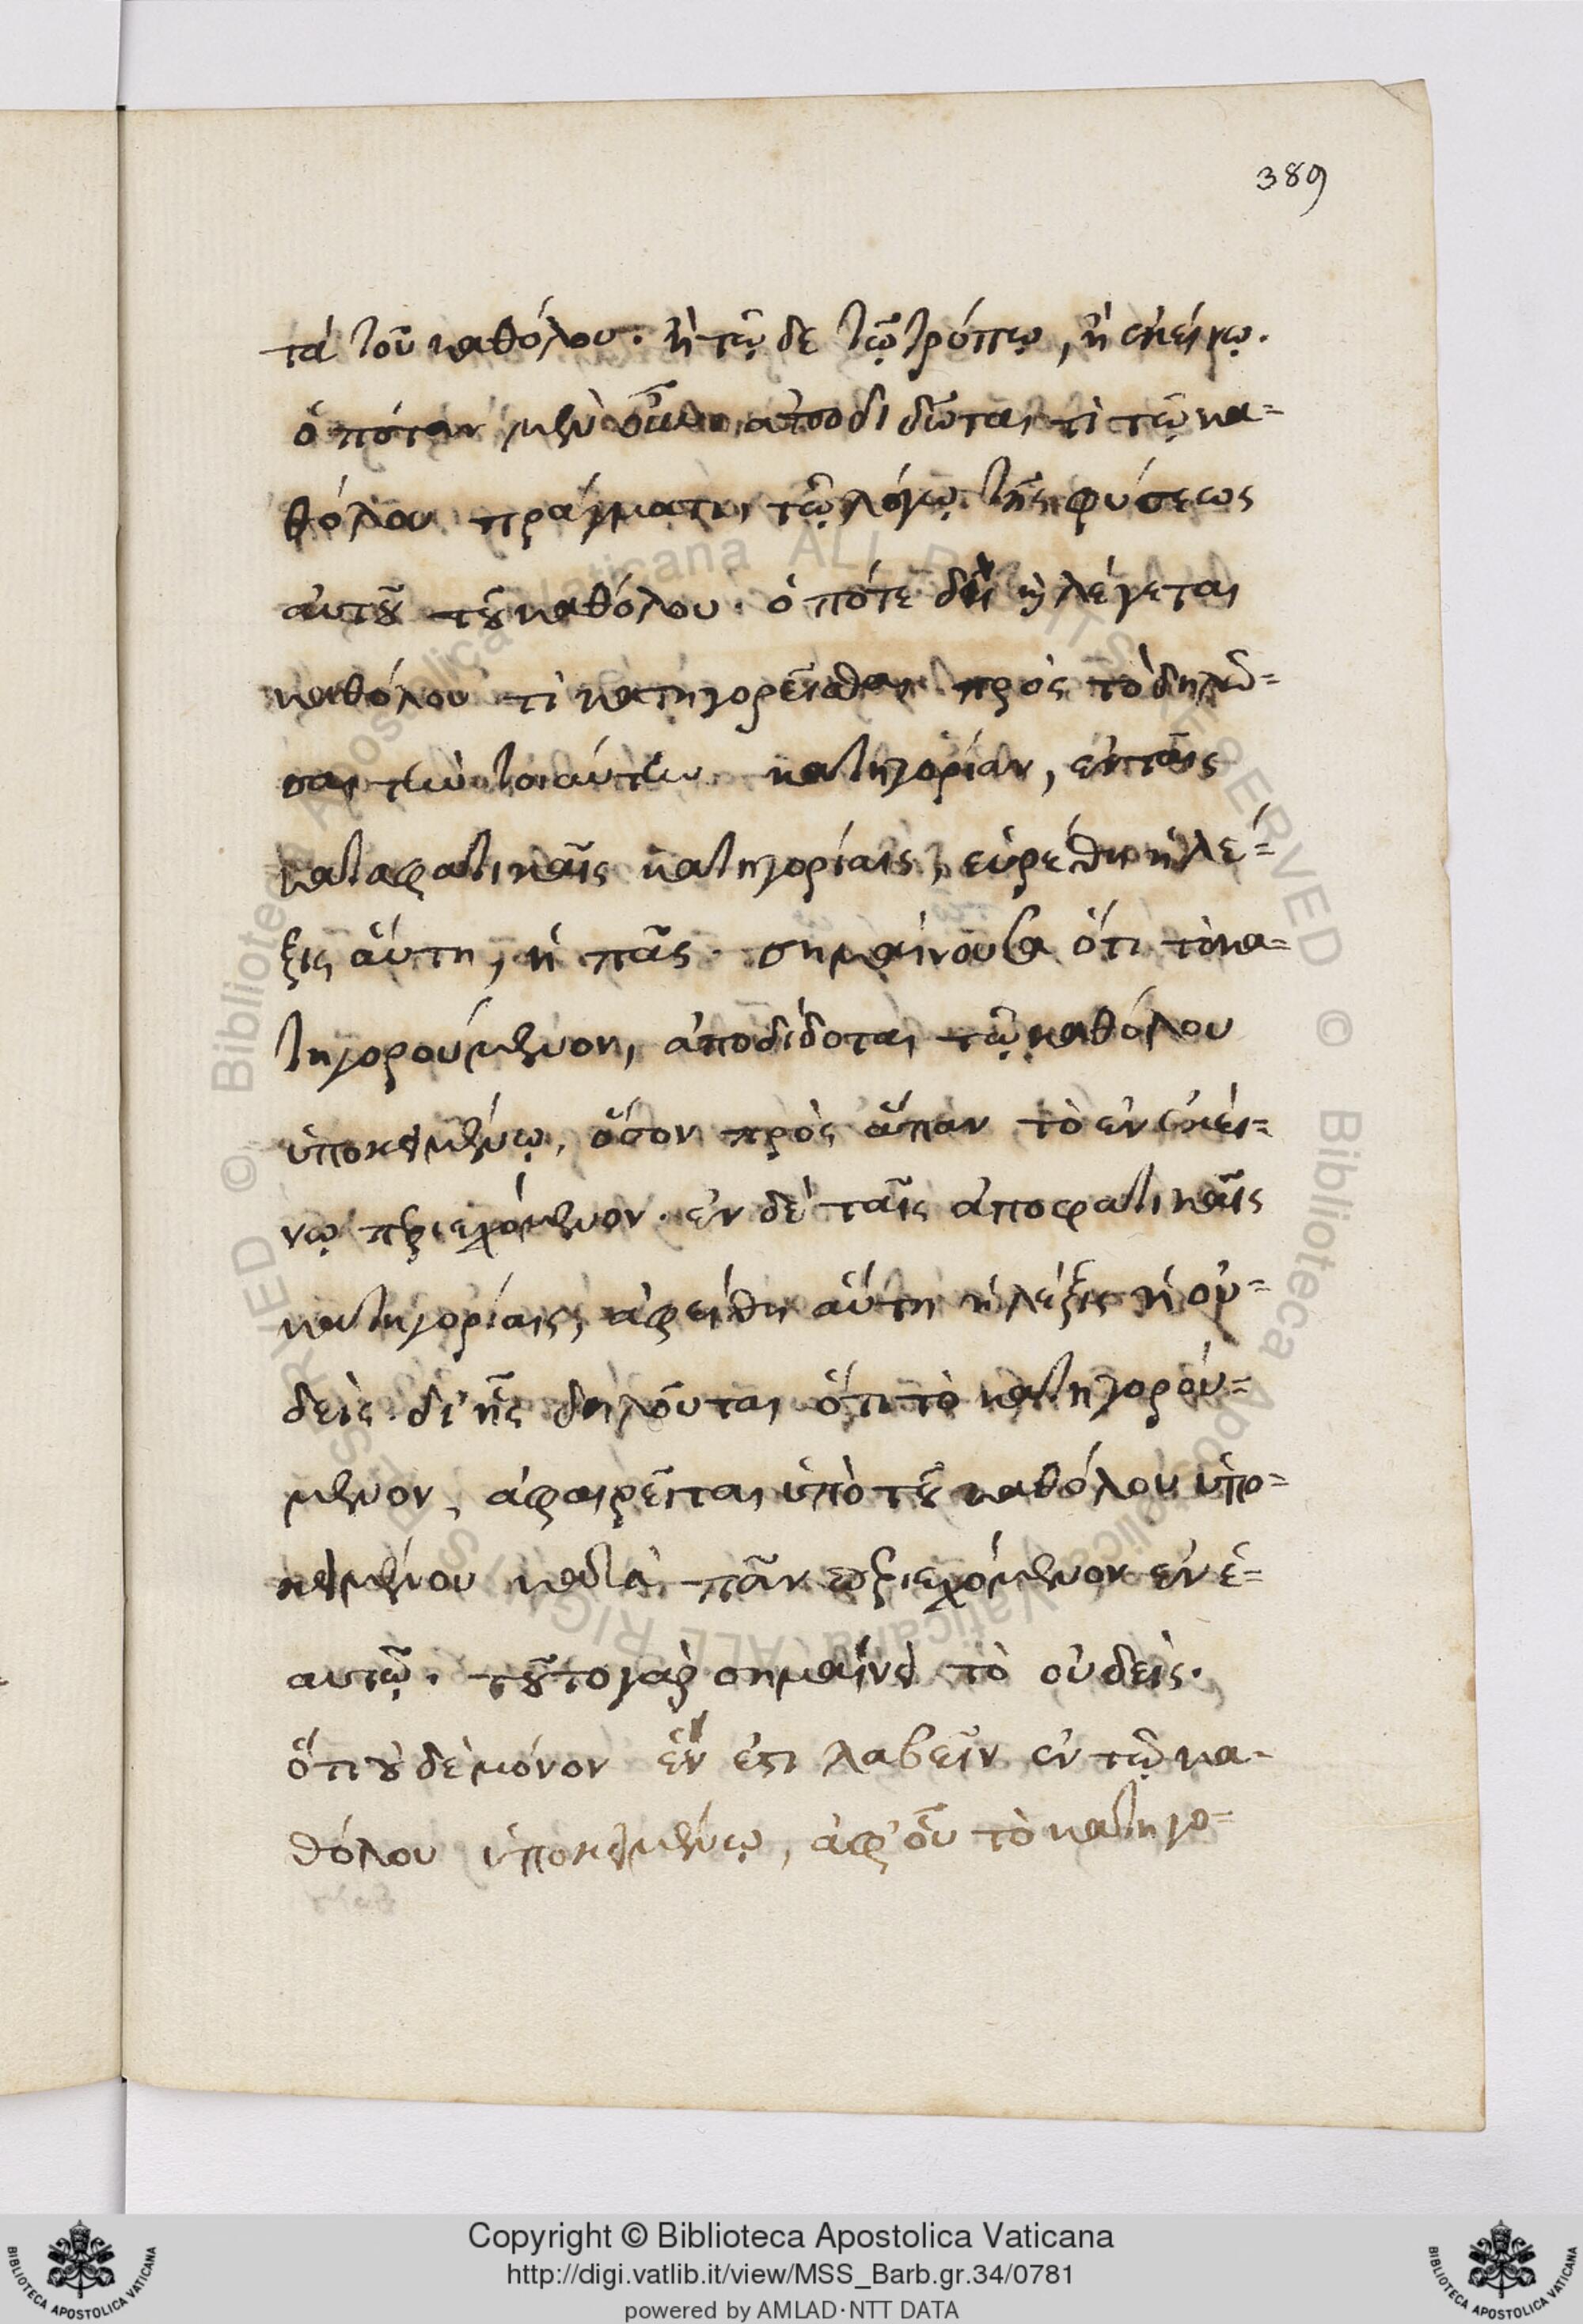 389
τὰ τοῦ καθόλου. ἢ τῷ δε τῷ τρόπῳ, ἢ ἐκείνῳ.
ὁπόταν μὲν οὖν ἀποδιδῶται τὶ τῷ κα=
θόλου πράγματι, τῷ λόγῳ τῆς φύσεως
αὐτοῦ τοῦ καθόλου. ὁπότε δὴ ἢ λέγεται
καθόλου τὶ κατηγορεῖσθαι πρὸς τὸ δηλῶ=
σαι τὴν τοιαύτην κατηγορίαν, ἐν ταῖς
καταφατικαῖς κατηγορίαις, εὑρέθη ἡ λέ=
ξις αὕτη, ἡ πᾶς. σημαίνουσα ὅτι τὸ κα=
τηγορούμενον, ἀποδίδοται τῷ καθόλου
ὑποκειμένῳ, ὅσον πρὸς ἅπαν τὸ ἐν ἐκεί=
νῳ περιεχόμενον. ἐν δὲ ταῖς ἀποφατικαῖς
κατηγορίαις, ἀφείθη αὕτη ἡ λέξις ἡ οὐ=
δεὶς. δι' ἧς δηλοῦται ὅτι τὸ κατηγορού=
μενον, ἀφαιρεῖται ὑπὸ τοῦ καθόλου ὑπο=
κειμένου κατὰ πᾶν περιεχόμενον ἐν ἑ=
αυτῷ. τοῦτο γὰρ σημαίνει τὸ οὐδεὶς.
ὅτι οὐδὲ μόνον ἓν ἐστι λαβεῖν ἐν τῷ κα=
θόλου ὑποκειμένῳ, ἀφ' οὗ τὸ κατηγο=
Copyright © Biblioteca Apostolica Vaticana
http://digi.vatlib.it/view/MSS_Barb.gr.34/0781
powered by AMLAD·NTT DATA